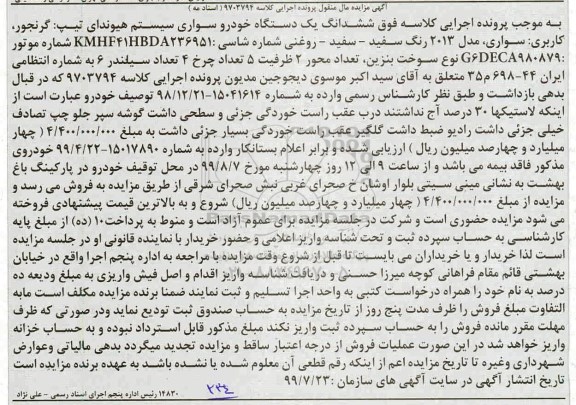 آگهی مزایده مال منقول پرونده اجرایی کلاسه ۹۷۰۳۷۹۴
به موجب پرونده اجرایی کلاسه فوق ششدانگ یک دستگاه خودرو سواری سیستم هیوندای تیپ: گرنجور،
کاربری: سواری، مدل ۲۰۱۳ رنگ سفید - سفید - روغنی شماره شاسی: KMHF۴۱HBDA۲۳۶۹۵۱ شماره موتور
:G۶DECA۹۸۰۸۷۹ نوع سوخت بنزین، تعداد محور ۲ ظرفیت ۵ تعداد چرخ ۴ تعداد سیلندر ۶ به شماره انتظامی
ایران ۴۴-۶۹۸ م ۳۵ متعلق به آقای سید اکبر موسوی دیجوجین مدیون پرونده اجرایی کلاسه ۹۷۰۳۷۹۴ که در قبال
بدهی بازداشت و طبق نظر کارشناس رسمی وارده به شماره ۱۵۰۴۱۶۱۴-۹۸/۱۲/۲۱ توصیف خودرو عبارت است از
اینکه لاستیکها ۳۰ درصد آج نداشتند درب عقب راست خوردگی جزئی و سطحی داشت گوشه سپر جلو چپ تصادف
خیلی جزئی داشت رادیو ضبط داشت گلگیر عقب راست خوردگی بسیار جزئی داشت به مبلغ ۴/۴۰۰/۰۰۰/۰۰۰ ( چهار
میلیارد و چهارصد میلیون ریال ) ارزیابی شده و برابر اعلام بستانکار وارده به شماره ۱۵۰۱۷۸۹۰-۹۹/۴/۲۲ خودروی
مذکور فاقد بیمه می باشد و از ساعت ۹ الی ۱۲ روز چهارشنبه مورخ ۹۹/۸/۷ در محل توقیف خودرو در پارکینگ باغ
بهشت به نشانی مینی سیتی بلوار اوشان خ صحرای غربی نبش صحرای شرقی از طریق مزایده به فروش می رسد و
مزایده از مبلغ ۴/۴۰۰/۰۰۰/۰۰۰ ( چهار میلیارد و چهارصد میلیون ریال) شروع و به بالاترین قیمت پیشنهادی فروخته
می شود مزایده حضوری است و شرکت در جلسه مزایده برای عموم آزاد است و منوط به پرداخت ۱۰ (ده) از مبلغ پایه
کارشناسی به حساب سپرده ثبت و تحت شناسه واریز اعلامی و حضور خریدار یا نماینده قانونی او در جلسه مزایده
است لذا خریدار و یا خریداران می بایست تا قبل از شروع وقت مزایده با مراجعه به اداره پنجم اجرا واقع در خیابان
بهشتی قائم مقام فراهانی کوچه میرزا حسنی و دریافت شناسه واریز اقدام و اصل فیش واریزی به مبلغ ودیعه ده
درصد به نام خود را همراه درخواست کتبی به واحد اجرا تسلیم و ثبت نمایند ضمنا برنده مزایده مکلف است مابه
التفاوت مبلغ فروش را ظرف مدت پنج روز از تاریخ مزایده به حساب صندوق ثبت تودیع نماید ودر صورتی که ظرف
مهلت مقرر مانده فروش را به حساب سپرده ثبت واریز نکند مبلغ مذکور قابل استرداد نبوده و به حساب خزانه
واریز خواهد شد در این صورت عملیات فروش از درجه اعتبار ساقط و مزایده تجدید میگردد بدهی مالیاتی وعوارض
شهرداری وغیره تا تاریخ مزایده اعم از اینکه رقم قطعی آن معلوم شده یا نشده باشد به عهده برنده مزایده است
تاریخ انتشار آگهی در سایت آگهی های سازمان: ۹۹/۷/۲۳
۱۴۸۳۰ رئیس اداره پنجم اجرای اسناد رسمی - علی نژاد